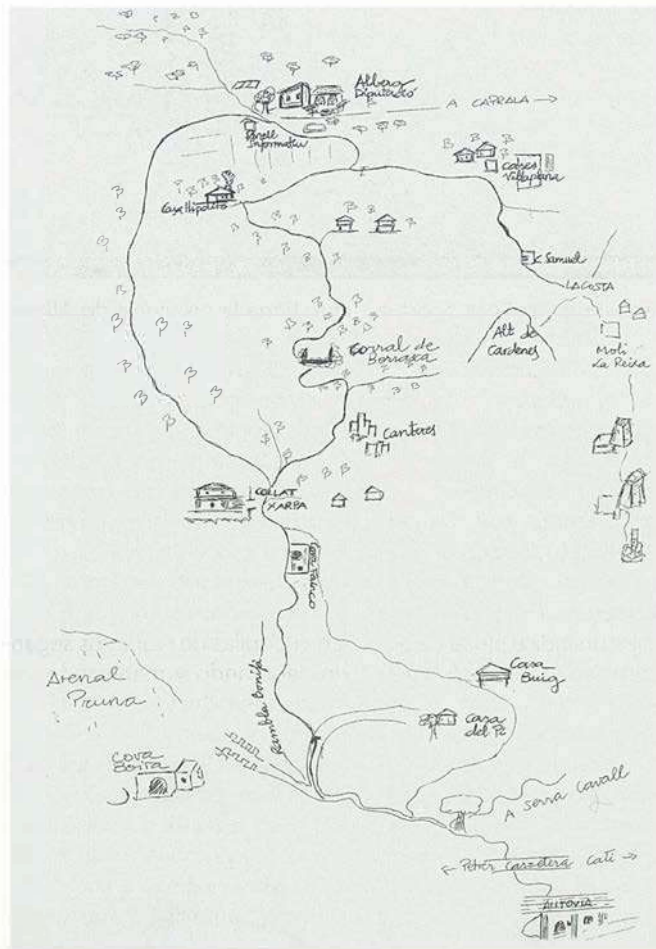 Alberg
Diputació
A CAPRALA →
Panell
Informatiu
Cases
Villaplana
Casa Hipólito
C. Samuel
LA COSTA
Alt de
Cardenes
Molí
La Reixa
Corral de
Borrasca
Canteres
COLLAT
XARPA
Rambla Bonifá
Casa
Buig
Arenal
Casa
del Pi
Cova
A Serra Cavall
← Petrer Carretera Catí →
AUTOVIA